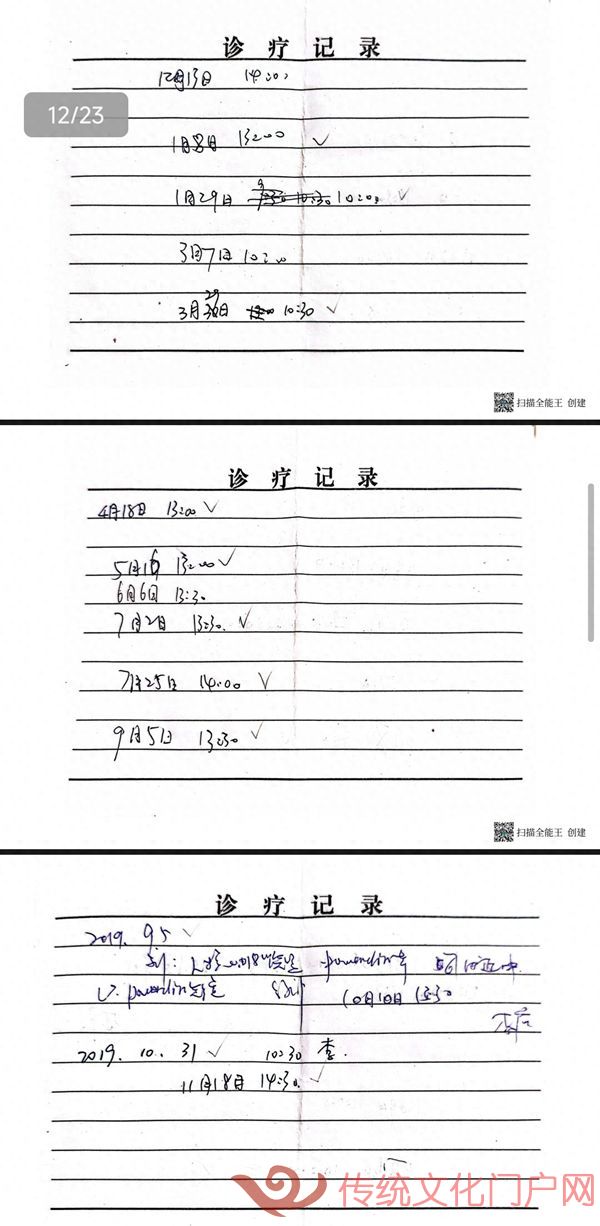 诊疗记录
12月13日 14:00
12/23
1月8日 13:00 ✓
1月29日 10:00 ✓
3月7日 10:00
3月29日 10:30 ✓
扫描全能王 创建
诊疗记录
4月18日 13:00 ✓
5月16 13:00 ✓
6月6日 13:30
7月2日 13:30 ✓
7月25日 14:00 ✓
9月5日 13:30 ✓
扫描全能王 创建
诊疗记录
2019. 9 5
10月10日 13:30
2019. 10. 31 ✓ 10:30 李.
11月18日 14:30 ✓
传统文化门户网